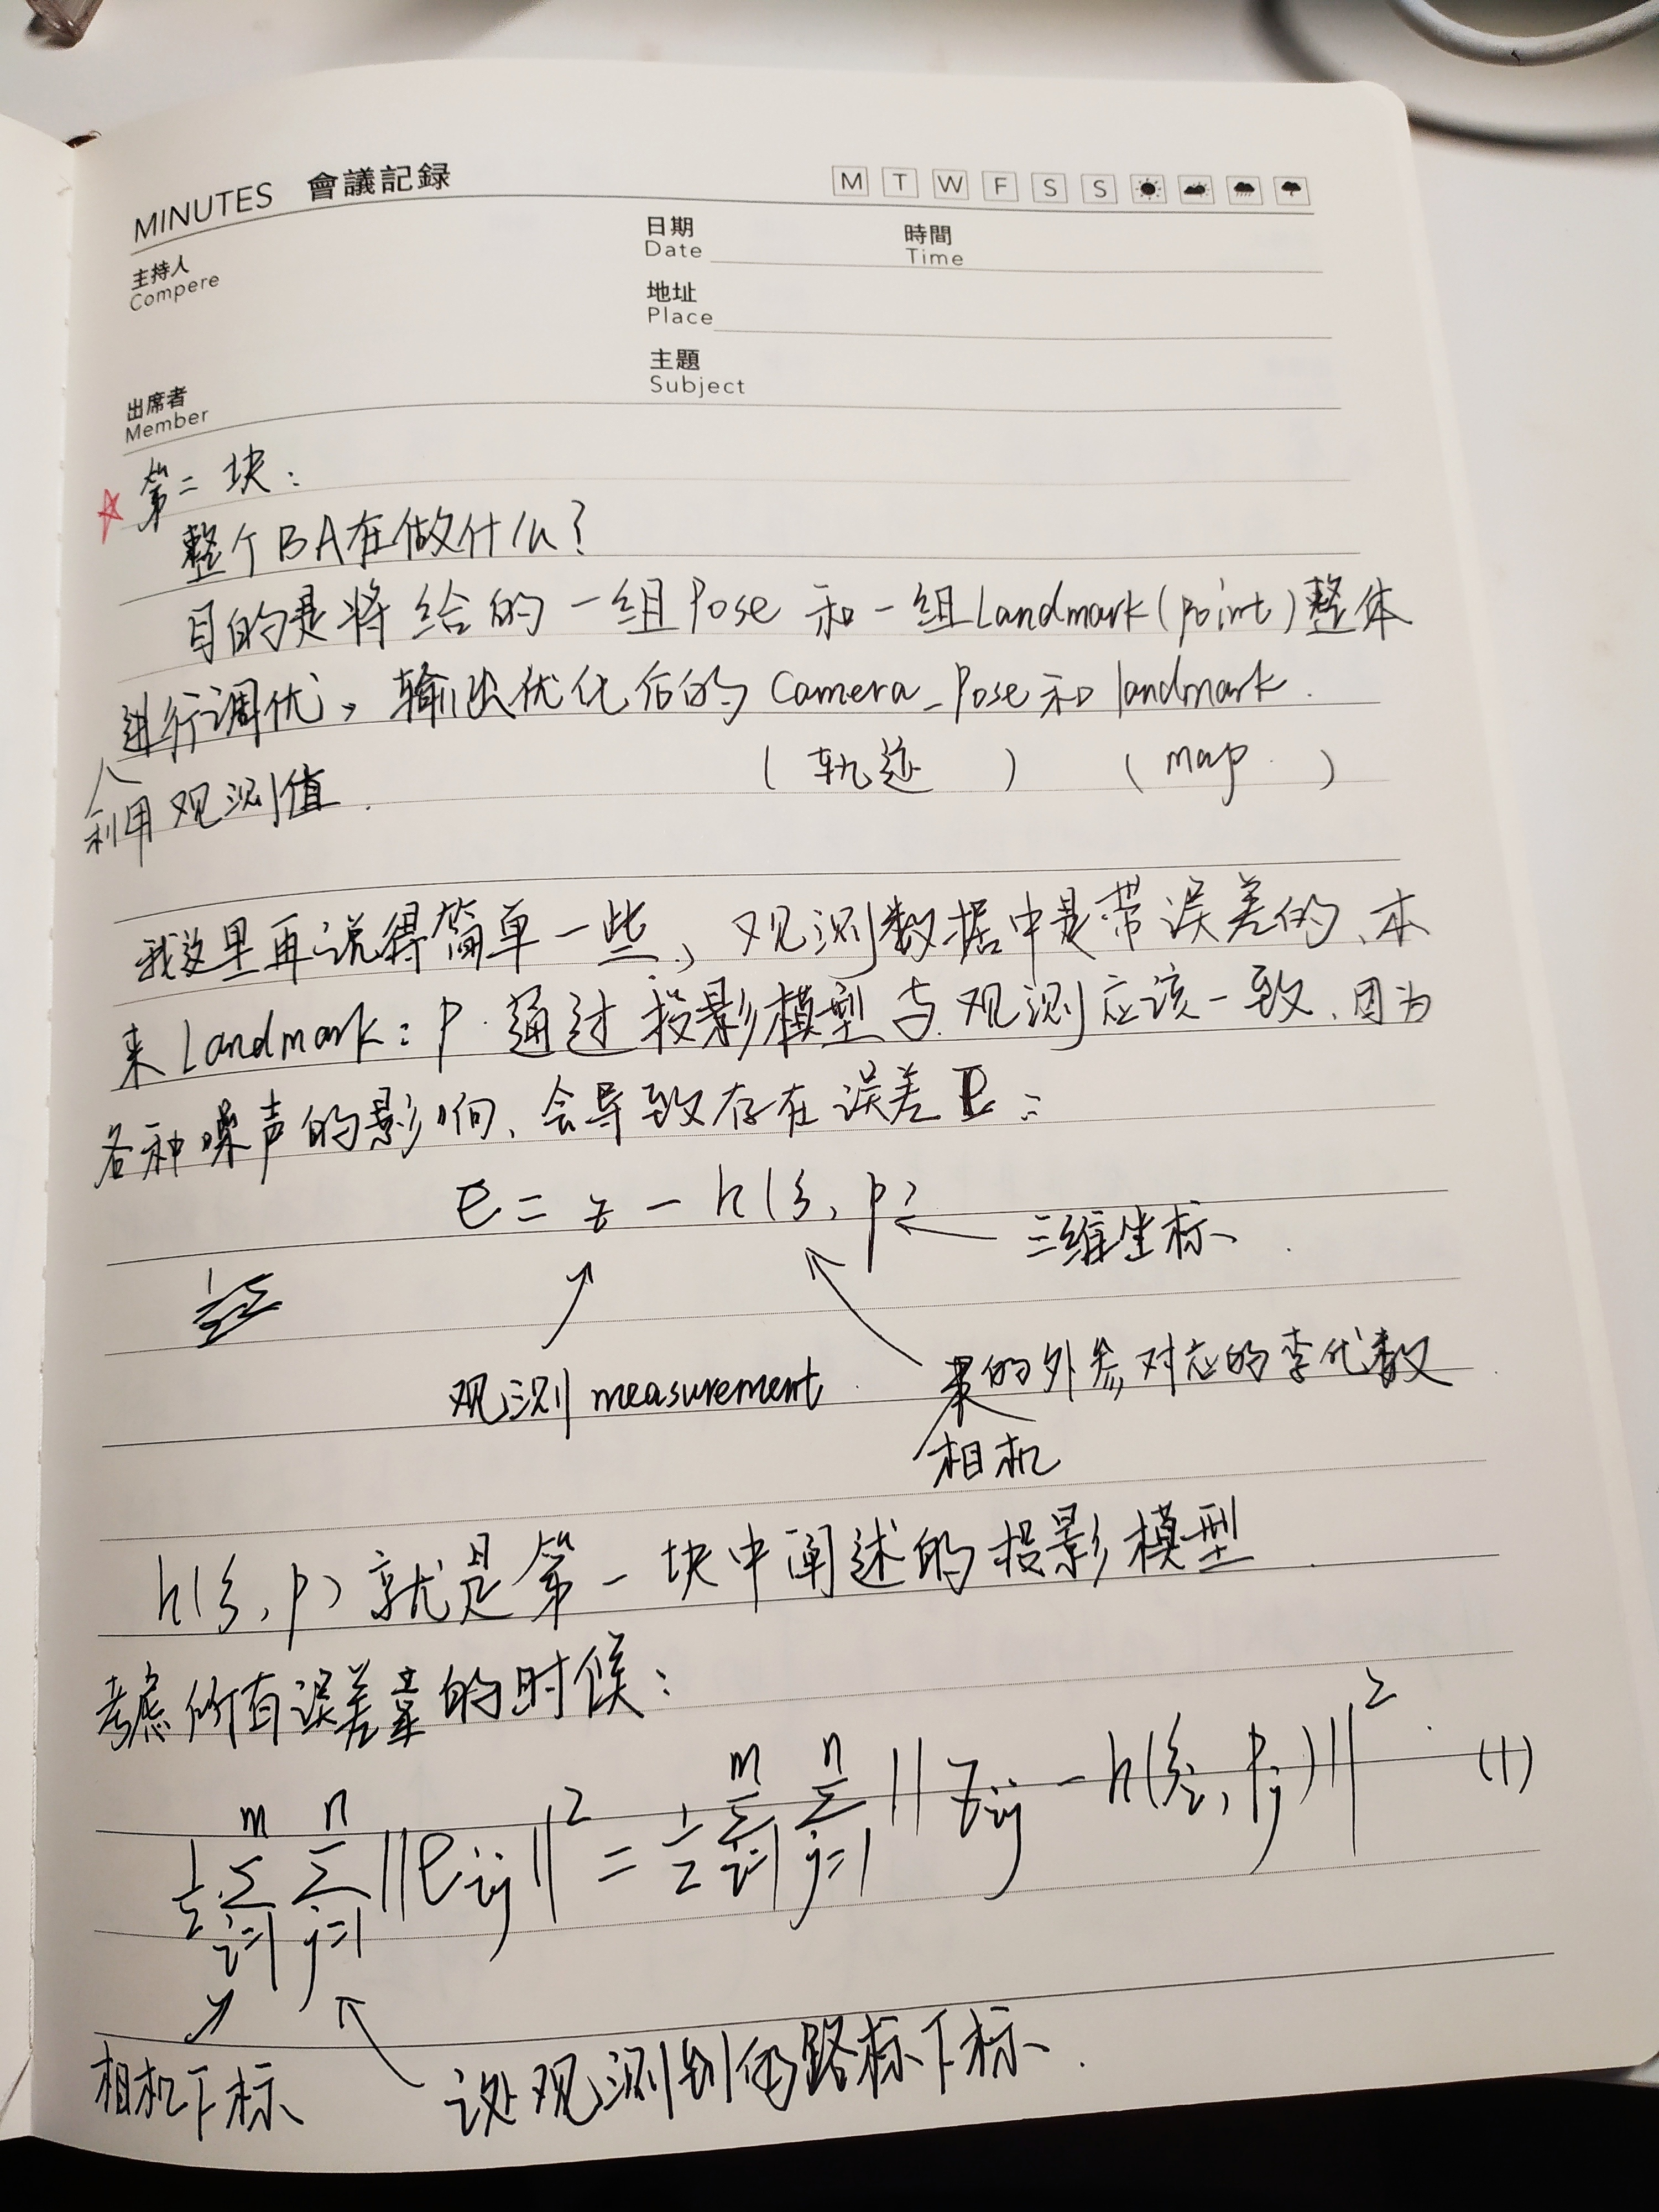 MINUTES 會議記録
M T W F S S
日期
Date
時間
Time
主持人
Compere
地址
Place
主題
Subject
出席者
Member
第二块：
整个BA在做什么？
目的是将给的一组Pose和一组Landmark(point)整体
进行调优，输出优化后的Camera_Pose和landmark.
（轨迹）（map）
利用观测值.
我这里再说得简单一些，观测数据中是带误差的、本
来Landmark：P 通过投影模型与观测应该一致、因为
各种噪声的影响、会导致存在误差e：
e = z - h(ξ, p)
三维坐标
观测measurement
的外参对应的李代数
相机
h(ξ, p) 就是第一块中阐述的投影模型
考虑所有误差量的时候：
½ ∑_{i=1}^{m} ∑_{j=1}^{n} ||e_{ij}||² = ½ ∑_{i=1}^{m} ∑_{j=1}^{n} ||z_{ij} - h(ξ_i, p_j)||². (1)
相机下标
该处观测到的路标下标.